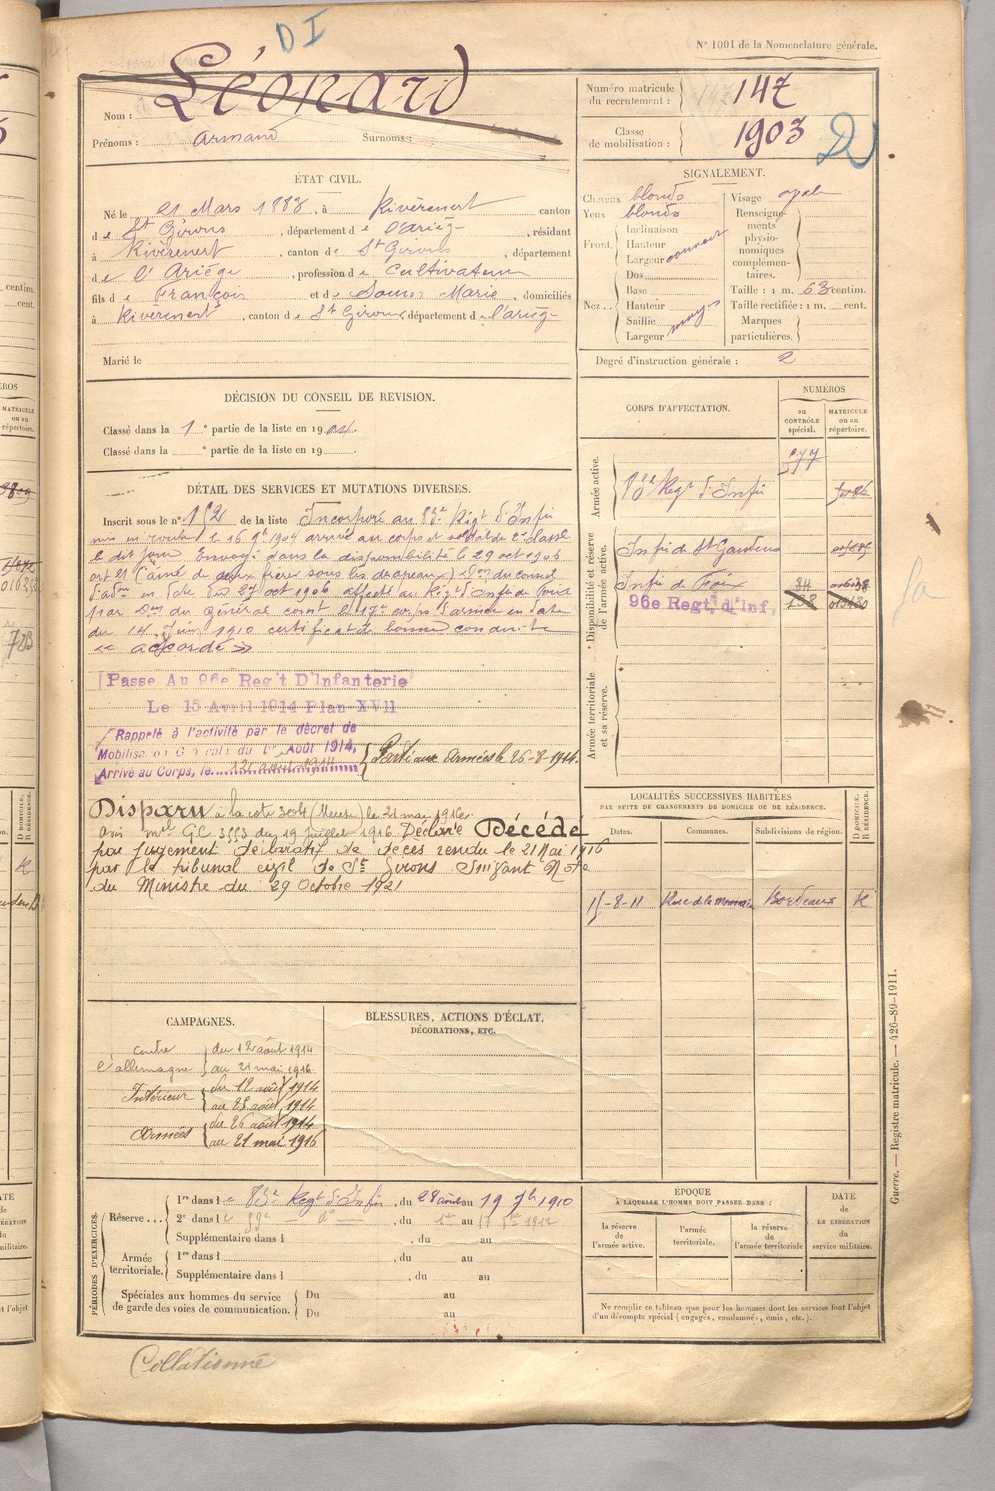 DI
N° 1001 de la Nomenclature générale.
Nom : Léonard
Prénoms : Armand Surnoms :
Numéro matricule du recrutement : 147
Classe de mobilisation : 1903
ÉTAT CIVIL.
Né le 21 Mars 1883, à Rivèrenert canton
de St Girons, département de l'Ariège, résidant
à Rivèrenert, canton de St Girons, département
de l'Ariège, profession de Cultivateur
fils de François et de Marie, domiciliés
à Rivèrenert, canton de St Girons, département de l'ariège
Marié le
SIGNALEMENT.
Cheveux blonds Visage ovale
Yeux blonds Renseignements physionomiques complémentaires.
Front. Inclinaison
Hauteur
Largeur
Nez.. Dos
Base
Hauteur
Saillie
Largeur moy
Taille : 1 m. 63 centim.
Taille rectifiée : 1 m. cent.
Marques particulières.
Degré d'instruction générale : 2
DÉCISION DU CONSEIL DE REVISION.
Classé dans la 1e partie de la liste en 1904.
Classé dans la e partie de la liste en 19
CORPS D'AFFECTATION.
NUMÉROS
au CONTRÔLE spécial.
MATRICULE ou au répertoire.
Armée active.
83e Régt d'Infie
Disponibilité et réserve de l'armée active.
Infie de St Gaudens
Infie de Foix
96e Regt. d'Inf.
Armée territoriale et sa réserve.
DÉTAIL DES SERVICES ET MUTATIONS DIVERSES.
Inscrit sous le n° 152 de la liste Incorporé au 83e Régt d'Infie
mis en route le 16 9bre 1904 arrivé au corps et soldat de 2e classe
le dit jour Envoyé dans la disponibilité le 29 oct 1906
art 21 (aîné de deux frères sous les drapeaux) Don du conseil
d'adon en date du 27 oct 1906 affecté au Régt d'Infie de
par Don du Général comt le 17e corps d'armée en date
du 14 Juin 1910 certificat de bonne conduite
« accordé »
Passe Au 96e Reg't D'Infanterie
Le 15 Avril 1914 Plan XVII
Rappelé à l'activité par le décret de
Mobilisation Générale du 1er Août 1914,
Arrivé au Corps, le 12 août 1914 Parti aux Armées le 26-8-1914.
Disparu à la cote 304 (Meuse) le 21 mai 1916.
avis mel GC 3553 du 19 juillet 1916 Déclaré Décédé
par jugement déclaratif de décès rendu le 21 Mai 1916
par le tribunal civil de St Girons Suivant Note
du Ministre du 29 Octobre 1921
LOCALITÉS SUCCESSIVES HABITÉES
PAR SUITE DE CHANGEMENTS DE DOMICILE OU DE RÉSIDENCE.
Dates. Communes. Subdivisions de région. D DOMICILE. R RÉSIDENCE.
15-8-11 Bordeaux R
CAMPAGNES.
contre l'allemagne du 12 août 1914
au 21 mai 1916
Intérieur du 12 août 1914
au 25 août 1914
Armées du 26 août 1914
au 21 mai 1916
BLESSURES, ACTIONS D'ÉCLAT,
DÉCORATIONS, ETC.
PÉRIODES D'EXERCICES.
Réserve... 1re dans le 83e Régt d'Infie, du 28 août au 19 7bre 1910
2e dans le 59e do, du 1er au 17 1912
Supplémentaire dans l , du au
Armée territoriale. 1re dans l , du au
Supplémentaire dans l , du au
Spéciales aux hommes du service de garde des voies de communication. Du au
Du au
ÉPOQUE
À LAQUELLE L'HOMME DOIT PASSER DANS :
la réserve de l'armée active.
l'armée territoriale.
la réserve de l'armée territoriale
DATE de LA LIBÉRATION du service militaire.
Ne remplir ce tableau que pour les hommes dont les services font l'objet
d'un décompte spécial (engagés, condamnés, omis, etc.).
Guerre. — Registre matricule. — 426-89-1911.
Collationné